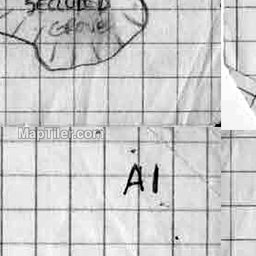 SECLUDED
GROVE
MapTiler.com
A1